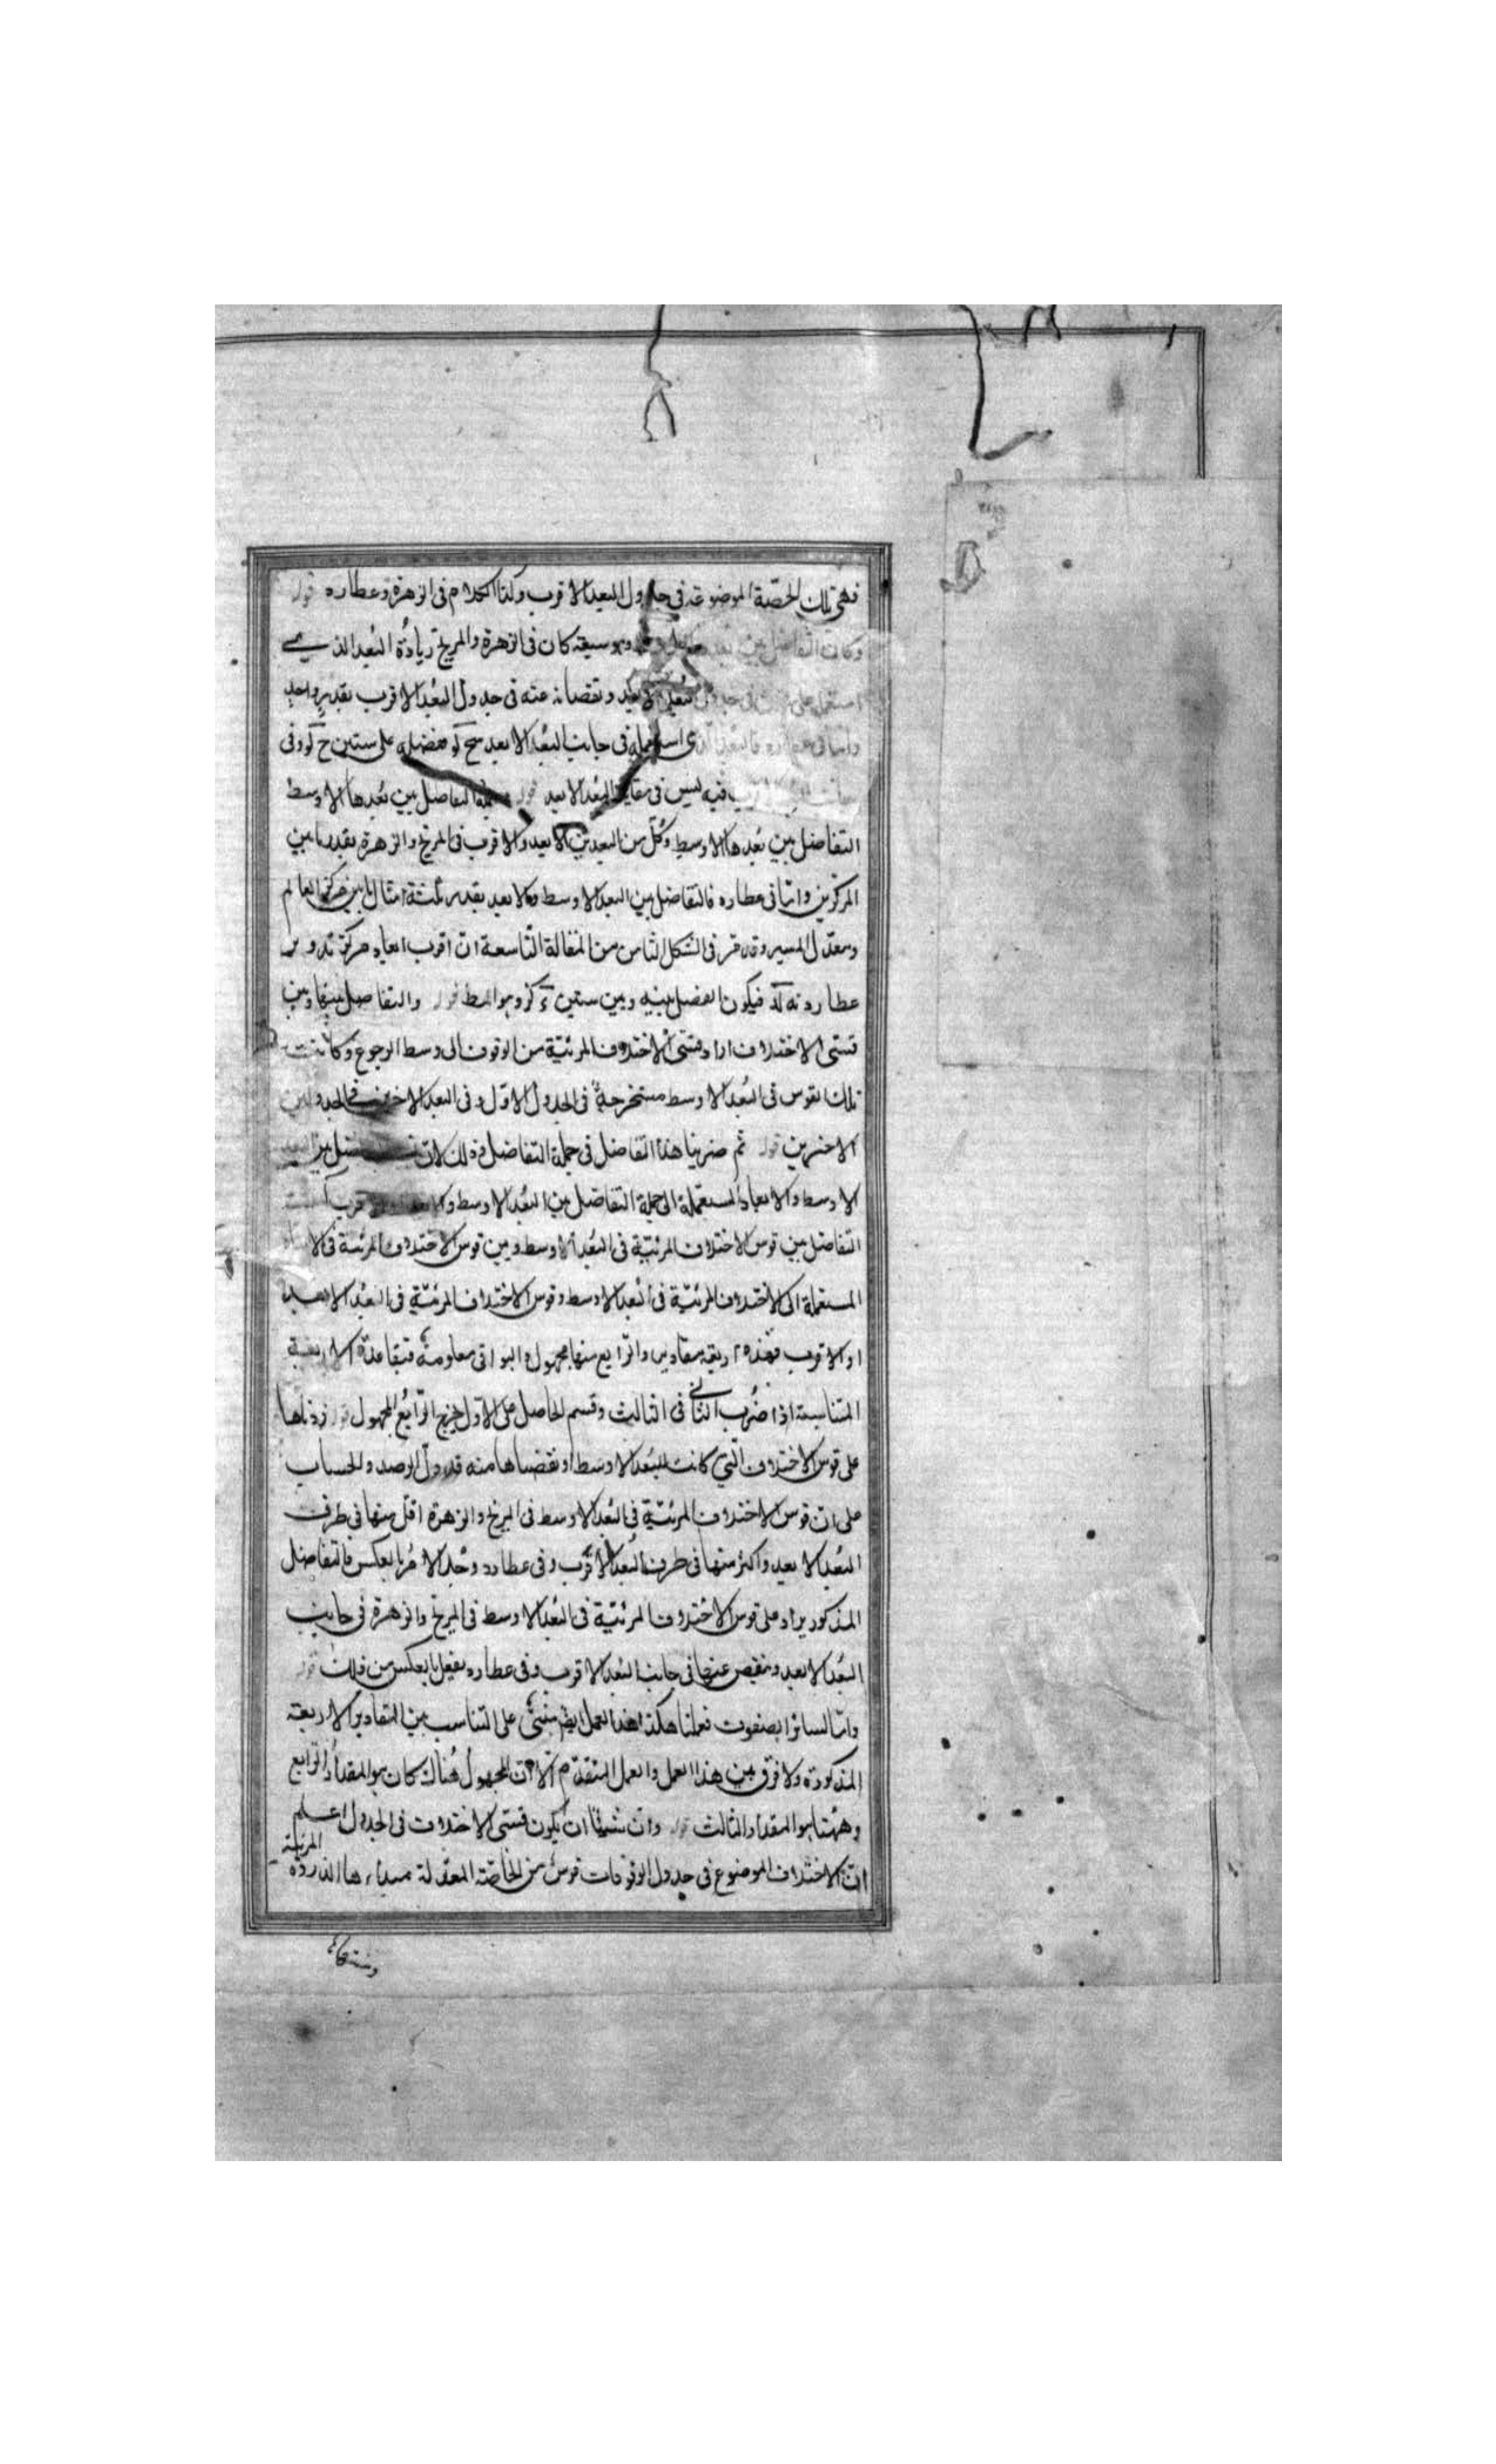 فهى تلك الحصّة الموضوعة فى جدول البعد الاقرب وكذا الكلام فى الزهرة وعطارد قوله
وكانت التفاضل بين بعد كان فى الزهرة والمريخ زيادة البُعد الذى
استعمل على فى جدول البُعد الابعد ونقصانه عنه فى جدول البُعد الاقرب بقدرٍ واحدٍ
وامّا فى عطارد فالبُعد الذى استعمله فى جانب البُعد الابعد سح كو ففضله على ستين ح كو وفى
جانب البُعد الاقرب فيه ليس فى مقابلة البُعد الابعد قوله جملة التفاضل بين بُعدها الاوسط
التفاضل بين بُعدها الاوسط وكلّ من البعدين الابعد والاقرب فى المريخ والزهرة بقدر ما بين
المركزين وامّا فى عطارد فالتفاضل بين البعد الاوسط والابعد بقدر ثلثة امثال ما بين مركزى العالم
ومعدّل المسير وقد قرر فى الشكل الثامن من المقالة التّاسعة انّ اقرب ابعاد مركز تدوير
عطارد نه لد فيكون الفضل بينه وبين ستين د كو وهو المط قوله والتفاضل بينها وبين
قسىّ الاختلاف اراد قسىّ الاختلاف المرئيّة من الوقوف الى وسط الرجوع وكانت
تلك القوس فى البُعد الاوسط مستخرجةً فى الجدول الاوّل وفى البعد الاخرين فى الجدولين
الاخرين قوله ثم ضربنا هذا التفاضل فى جملة التفاضل وذلك لانّ التفاضل بين البعد
الاوسط والابعاد المستعملة الى جملة التفاضل بين البُعد الاوسط والابعد او الاقرب كنسبة
التفاضل بين قوس الاختلاف المرئيّة فى البُعد الاوسط وبين قوس الاختلاف المرئيّة فى الابعاد
المستعملة الى الاختلاف المرئيّة فى البُعد الاوسط وقوس الاختلاف المرئيّة فى البعُد الابعد
او الاقرب فهذه اربعة مقادير والرّابع منها مجهول والبواقى معلومة فبقاعدة الاربعة
المتناسبة اذا ضُرب الثّانى فى الثالث وقسم الحاصل على الاوّل يخرج الرّابع المجهول قوله زدناها
على قوس الاختلاف الّتى كانت للبُعد الاوسط او نقصناها منه قد دلّ الرصد والحساب
على ان قوس الاختلاف المرئيّة فى البُعد الاوسط فى المريخ والزهرة اقل منها فى طرف
البُعد الابعد واكثر منها فى طرف البُعد الاقرب وفى عطارد وجد الامر بالعكس فالتفاضل
المذكور يزاد على قوس الاختلاف المرئيّة فى البُعد الاوسط فى المريخ والزهرة فى جانب
البُعد الابعد وينقص عنها فى جانب البُعد الاقرب وفى عطارد يفعل بالعكس من ذلك قوله
وامّا لسائر الصفوف فعملنا هكذا هذا العمل ايضا مبنىٌّ على التناسب بين المقادير الاربعة
المذكورة ولا فرق بين هذا العمل والعمل المتقدّم الّا انّ المجهول هُناك كان هو المقدار الرّابع
وههُنا هو المقدار الثالث قوله وان شئنا ان يكون قسىّ الاختلاف فى الجدول اعلم
انّ الاختلاف الموضوع فى جدول الوقوفات قوسٌ من الخاصّة المعدّلة مبداءها الذروة المرئية
ومنتهاها